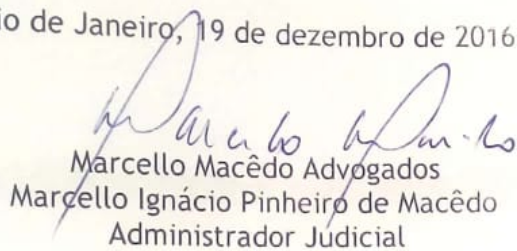 io de Janeiro, 19 de dezembro de 2016
Marcello Macêdo Advogados
Marcello Ignácio Pinheiro de Macêdo
Administrador Judicial